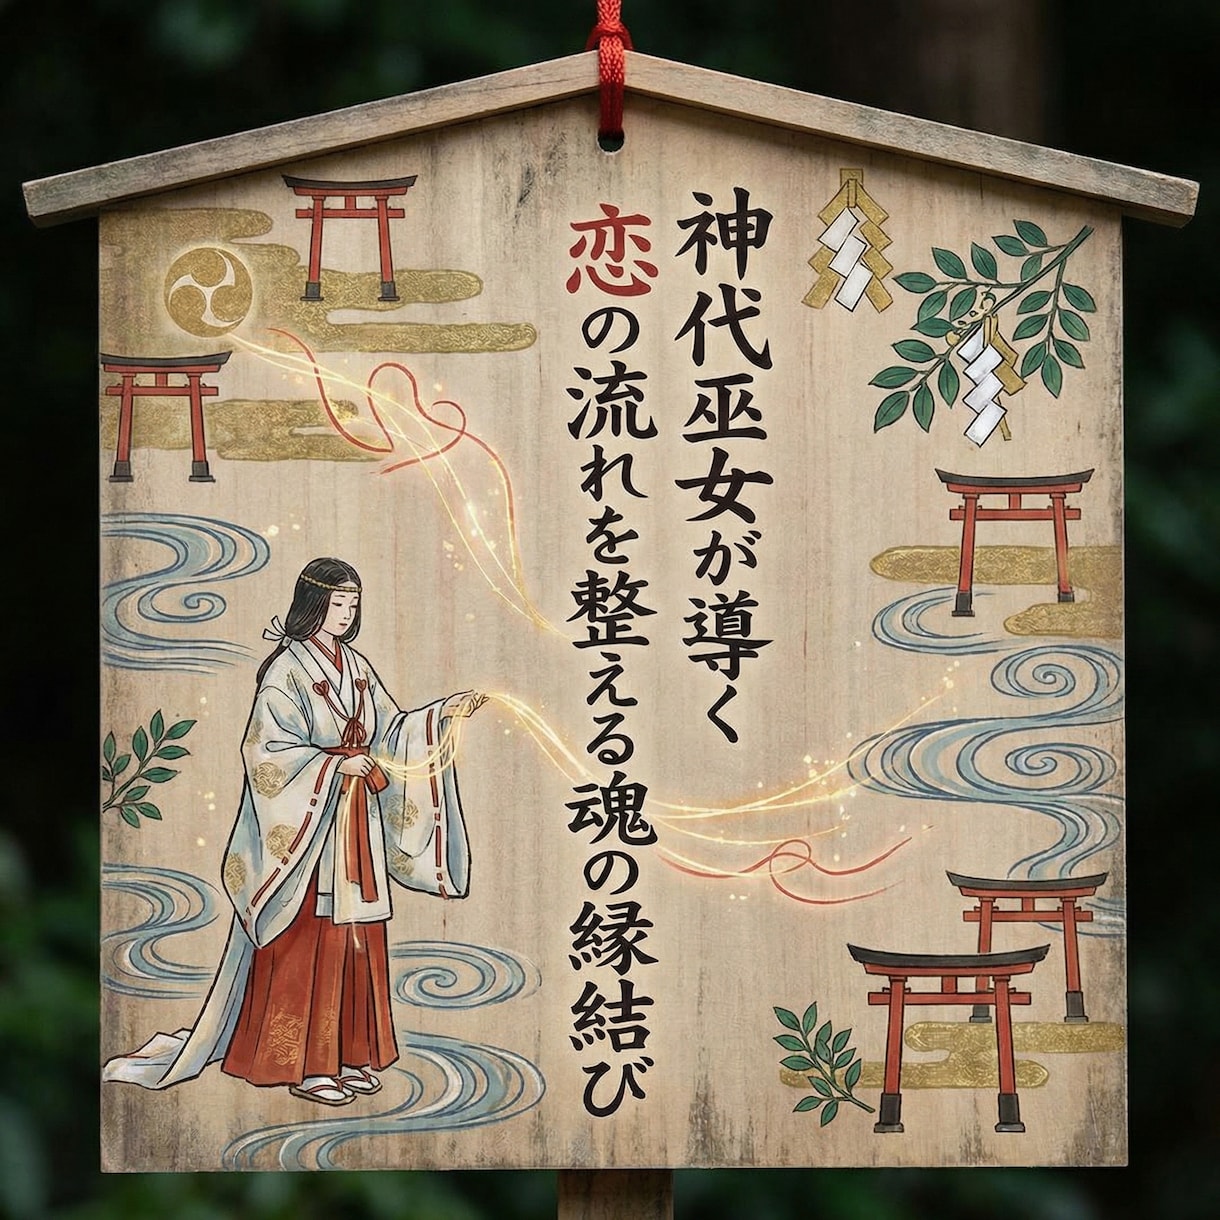 神代巫女が導く
恋の流れを整える魂の縁結び